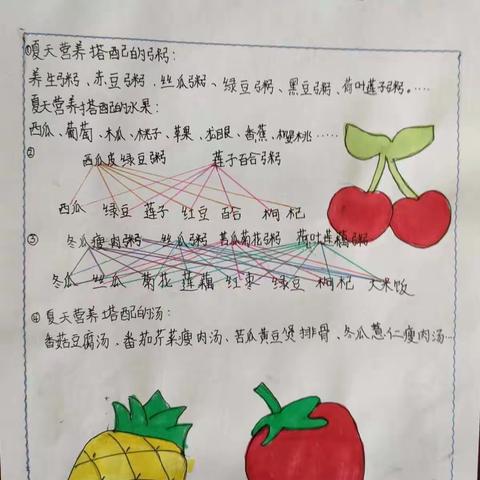 ①夏天营养搭配的粥:
养生粥、赤豆粥、丝瓜粥、绿豆粥、黑豆粥、荷叶莲子粥。····
夏天营养搭配的水果:
西瓜、葡萄、木瓜、桃子、苹果、龙眼、香蕉、樱桃·····
②
西瓜皮绿豆粥 莲子百合粥
西瓜 绿豆 莲子 红豆 百合 枸杞
③ 冬瓜瘦肉粥 丝瓜粥 苦瓜菊花粥 荷叶莲藕粥
冬瓜 丝瓜 菊花 莲藕 红枣 绿豆 枸杞 大米饭
④夏天营养搭配的汤:
香菇豆腐汤、番茄芹菜瘦肉汤、苦瓜黄豆煲排骨、冬瓜薏仁瘦肉汤···